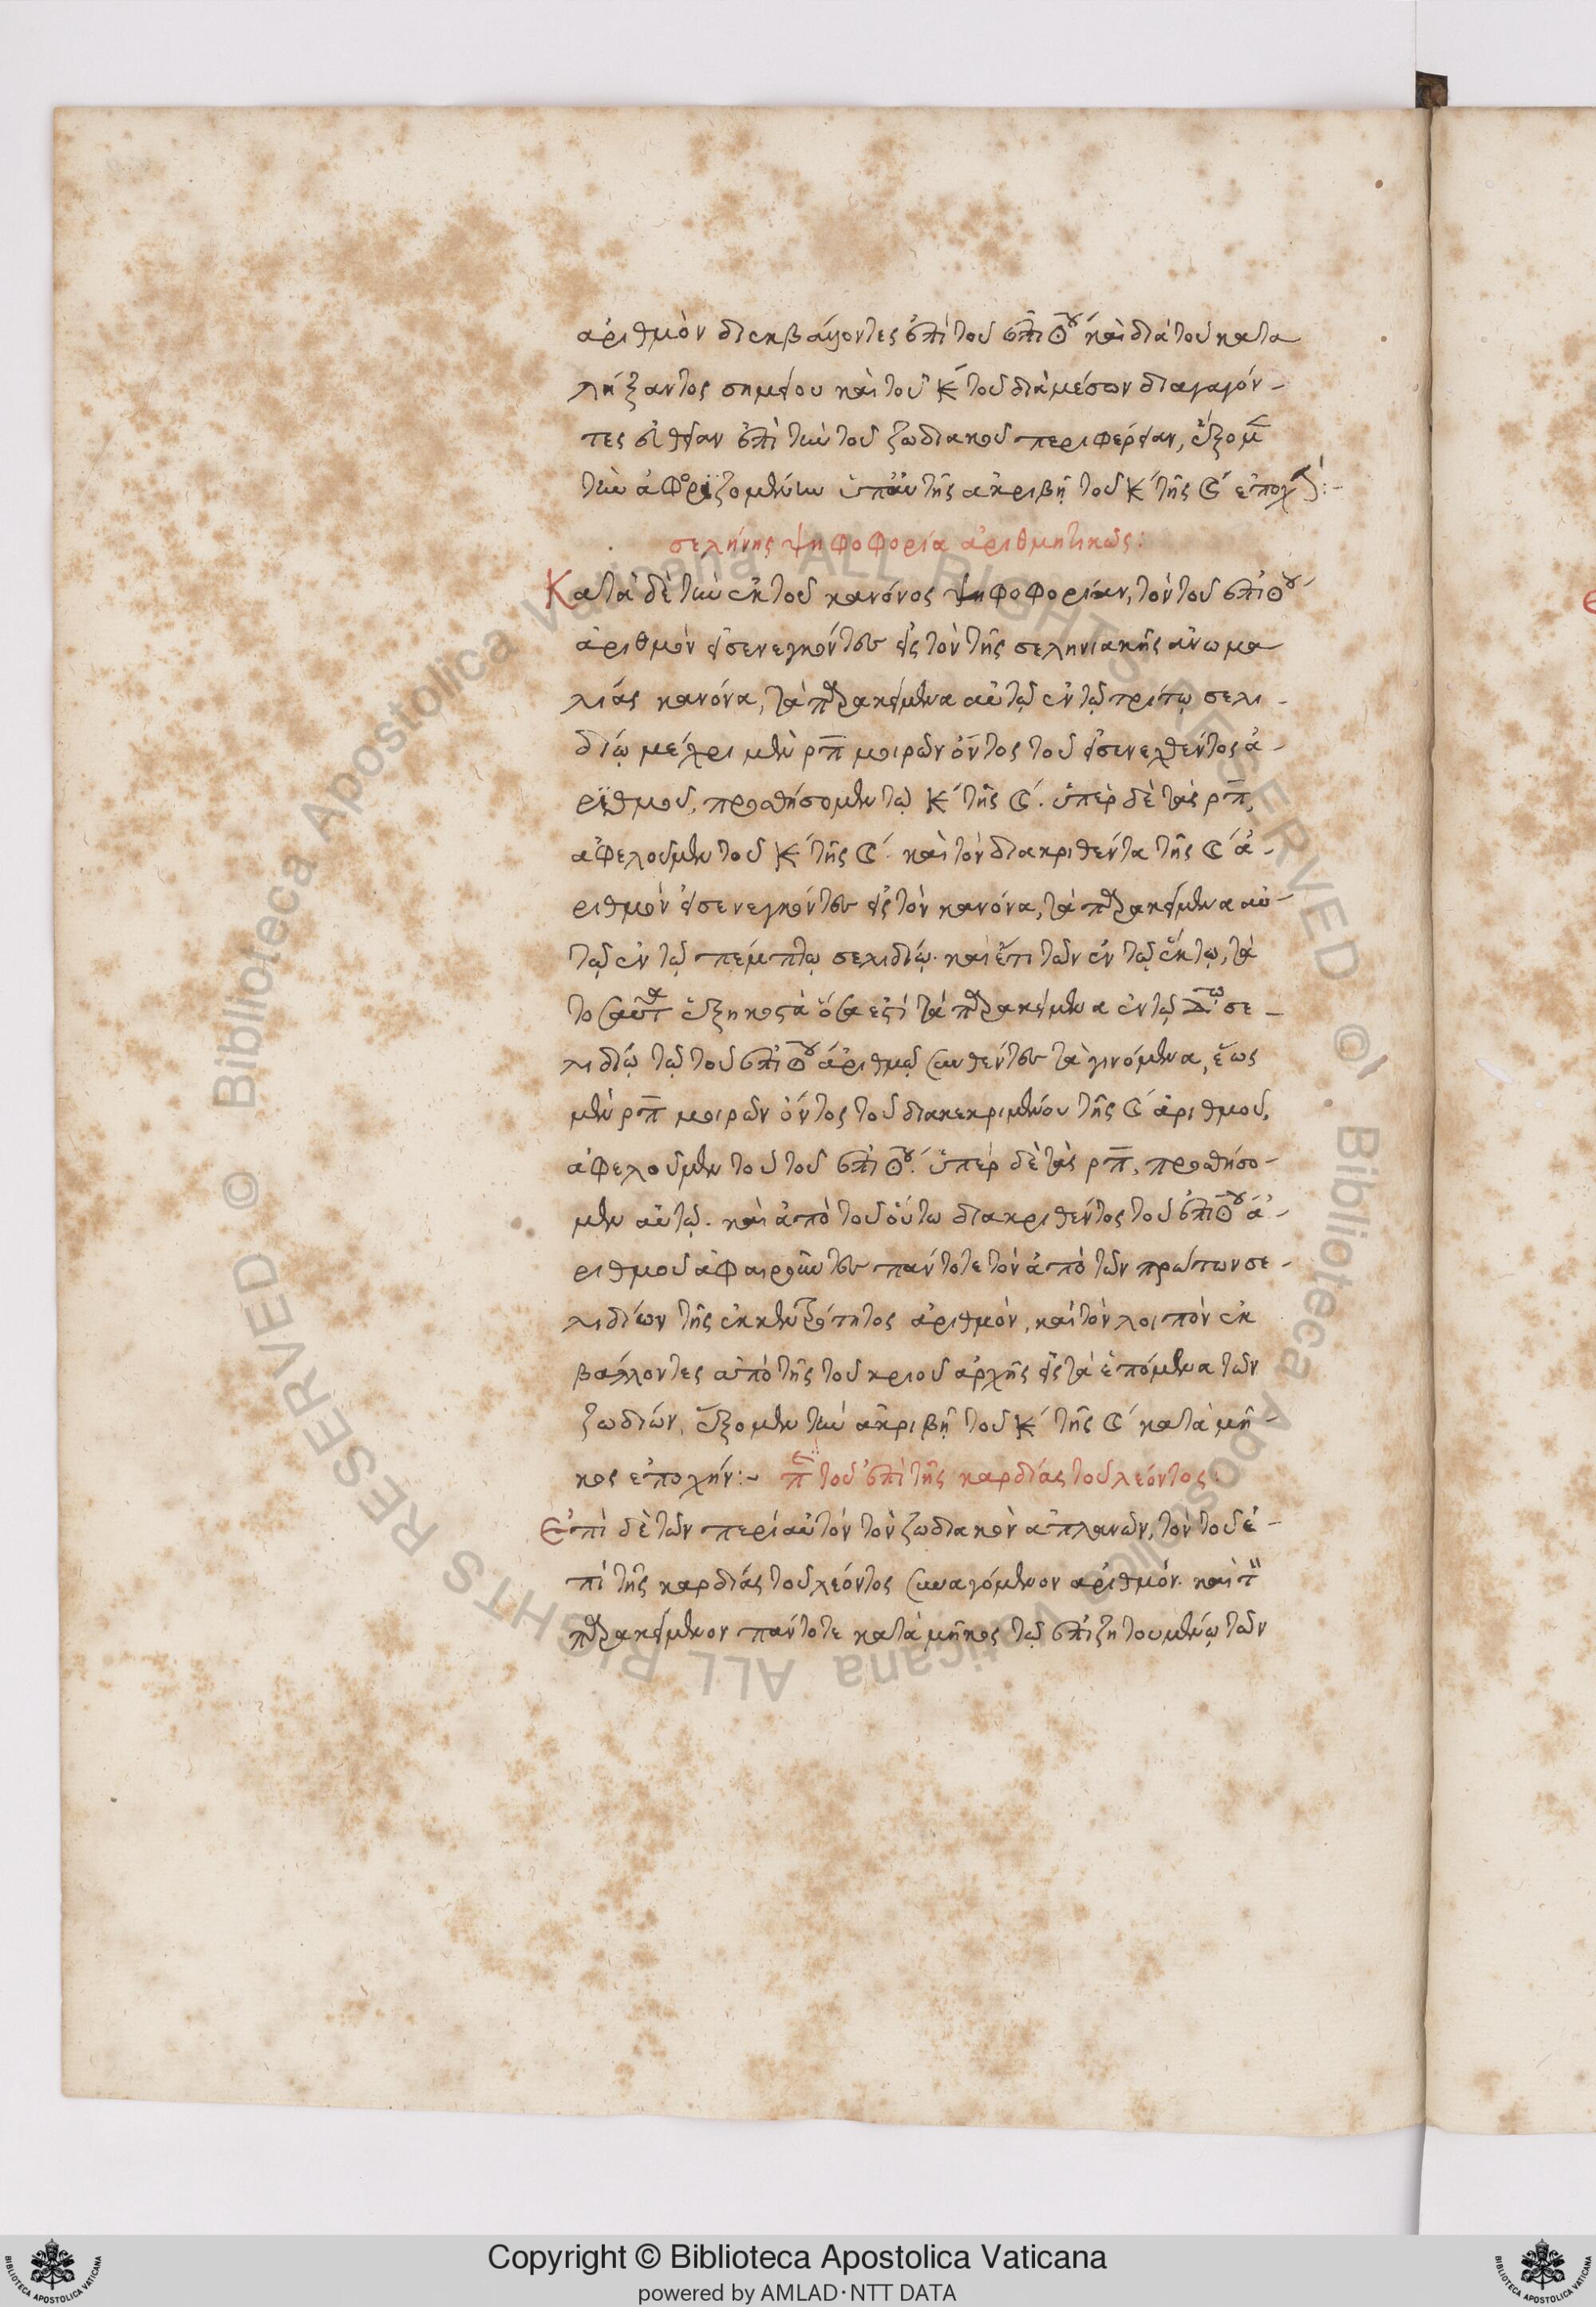 ἀριθμὸν διεκβάλλοντες ἐπὶ τοῦ ἐπι☉ου καὶ διὰ τοῦ κατα
λήξαντος σημείου καὶ τοῦ Κ τοῦ διὰ μέσων διαγαγόν-
τες εὐθεῖαν ἐπὶ τὴν τοῦ ζωδιακοῦ περιφέρειαν, ἕξομ
τὴν ἀφοριζομένην ὑπ' αὐτῆς ἀκριβῆ τοῦ Κ τῆς ☾ ἐποχήν:-
σελήνης ψηφοφορία ἀριθμητικῶς:
Κατὰ δὲ τὴν ἐκ τοῦ κανόνος ψηφοφορίαν, τὸν τοῦ ἐπι☉ου
ἀριθμὸν εἰσενεγκόντες εἰς τὸν τῆς σεληνιακῆς ἀνωμα
λίας κανόνα, τὰ παρακείμενα αὐτῷ ἐν τῷ τρίτῳ σελι-
δίῳ μέχρι μὲν ρπ μοιρῶν ὄντος τοῦ εἰσενεχθέντος ἀ-
ριθμοῦ, προσθήσομεν τῷ Κ τῆς ☾. ὑπὲρ δὲ τὰς ρπ,
ἀφελοῦμεν τοῦ Κ τῆς ☾. καὶ τὸν διακριθέντα τῆς ☾ ἀ-
ριθμὸν εἰσενεγκόντες εἰς τὸν κανόνα, τὰ παρακείμενα αὐ-
τῷ ἐν τῷ πέμπτῳ σελιδίῳ. καὶ ἔτι τῶν ἐν τῷ ἕκτῳ, τὰ
τοσαῦτα ἑξηκοστὰ ὅσα ἐστὶ τὰ παρακείμενα ἐν τῷ Δῳ σε-
λιδίῳ τῷ τοῦ ἐπι☉ου ἀριθμῷ συνθέντες τὰ γινόμενα, ἕως
μὲν ρπ μοιρῶν ὄντος τοῦ διακεκριμένου τῆς ☾ ἀριθμοῦ,
ἀφελοῦμεν τοῦ τοῦ ἐπι☉ου. ὑπὲρ δὲ τὰς ρπ, προσθήσο-
μεν αὐτῷ. καὶ ἀπὸ τοῦ οὕτω διακριθέντος τοῦ ἐπι☉ου ἀ-
ριθμοῦ ἀφαιροῦντες πάντοτε τὸν ἀπὸ τῶν πρώτων σε-
λιδίων τῆς ἐκκεντρότητος ἀριθμὸν, καὶ τὸν λοιπὸν ἐκ
βάλλοντες ἀπὸ τῆς τοῦ κριοῦ ἀρχῆς εἰς τὰ ἑπόμενα τῶν
ζωδίων, ἕξομεν τὴν ἀκριβῆ τοῦ Κ τῆς ☾ κατὰ μῆ-
κος ἐποχήν:- πε τοῦ ἐπὶ τῆς καρδίας τοῦ λέοντος:
Ἐπὶ δὲ τῶν περὶ αὐτὸν τὸν ζωδιακὸν ἀπλανῶν, τὸν τοῦ ἐ-
πὶ τῆς καρδίας τοῦ λέοντος συναγόμενον ἀριθμόν. καὶ τ
παρακείμενον πάντοτε κατὰ μῆκος τῷ ἐπιζητουμένῳ τῶν
Copyright © Biblioteca Apostolica Vaticana
powered by AMLAD·NTT DATA